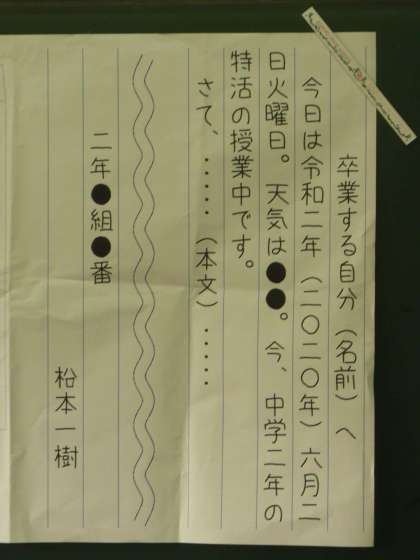 卒業する自分（名前）へ
今日は令和二年（二〇二〇年）六月二
日火曜日。天気は●●。今、中学二年の
特活の授業中です。
さて、・・・・・（本文）・・・・・
二年●組●番
松本一樹